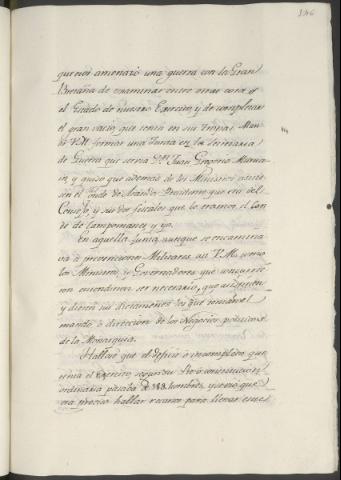 346
que nos amenazó una guerra con la Gran
Bretaña de examinar entre otras cosas
el Estado de nuestro Exercito, y de completar
el gran vacio que tenia en sus tropas Man-
V.M. formar una Junta en la Secretaria
de Guerra que servia Dn. Juan Gregorio Munia-
in, y quiso que además de los Ministros asistie-
sen el Conde de Aranda Presidente que era del
Consejo, y sus dos fiscales que lo eramos el Con-
de de Campomanes y yo.
En aquella Junta aunque se encamina-
va á prevenciones Militares
los Ministros, y Governadores que
entendiesen ser necesario, que asistiesen
y diesen sus dictamenes los que tenian el
mando ó direccion de los Negocios politicos
de la Monarquia.
Hallose que el deficit ó incompleto que
tenia el Exercito, segun su constitucion
ordinaria pasaba de hombres, y se vio que
era preciso hallar recursos para llenar este